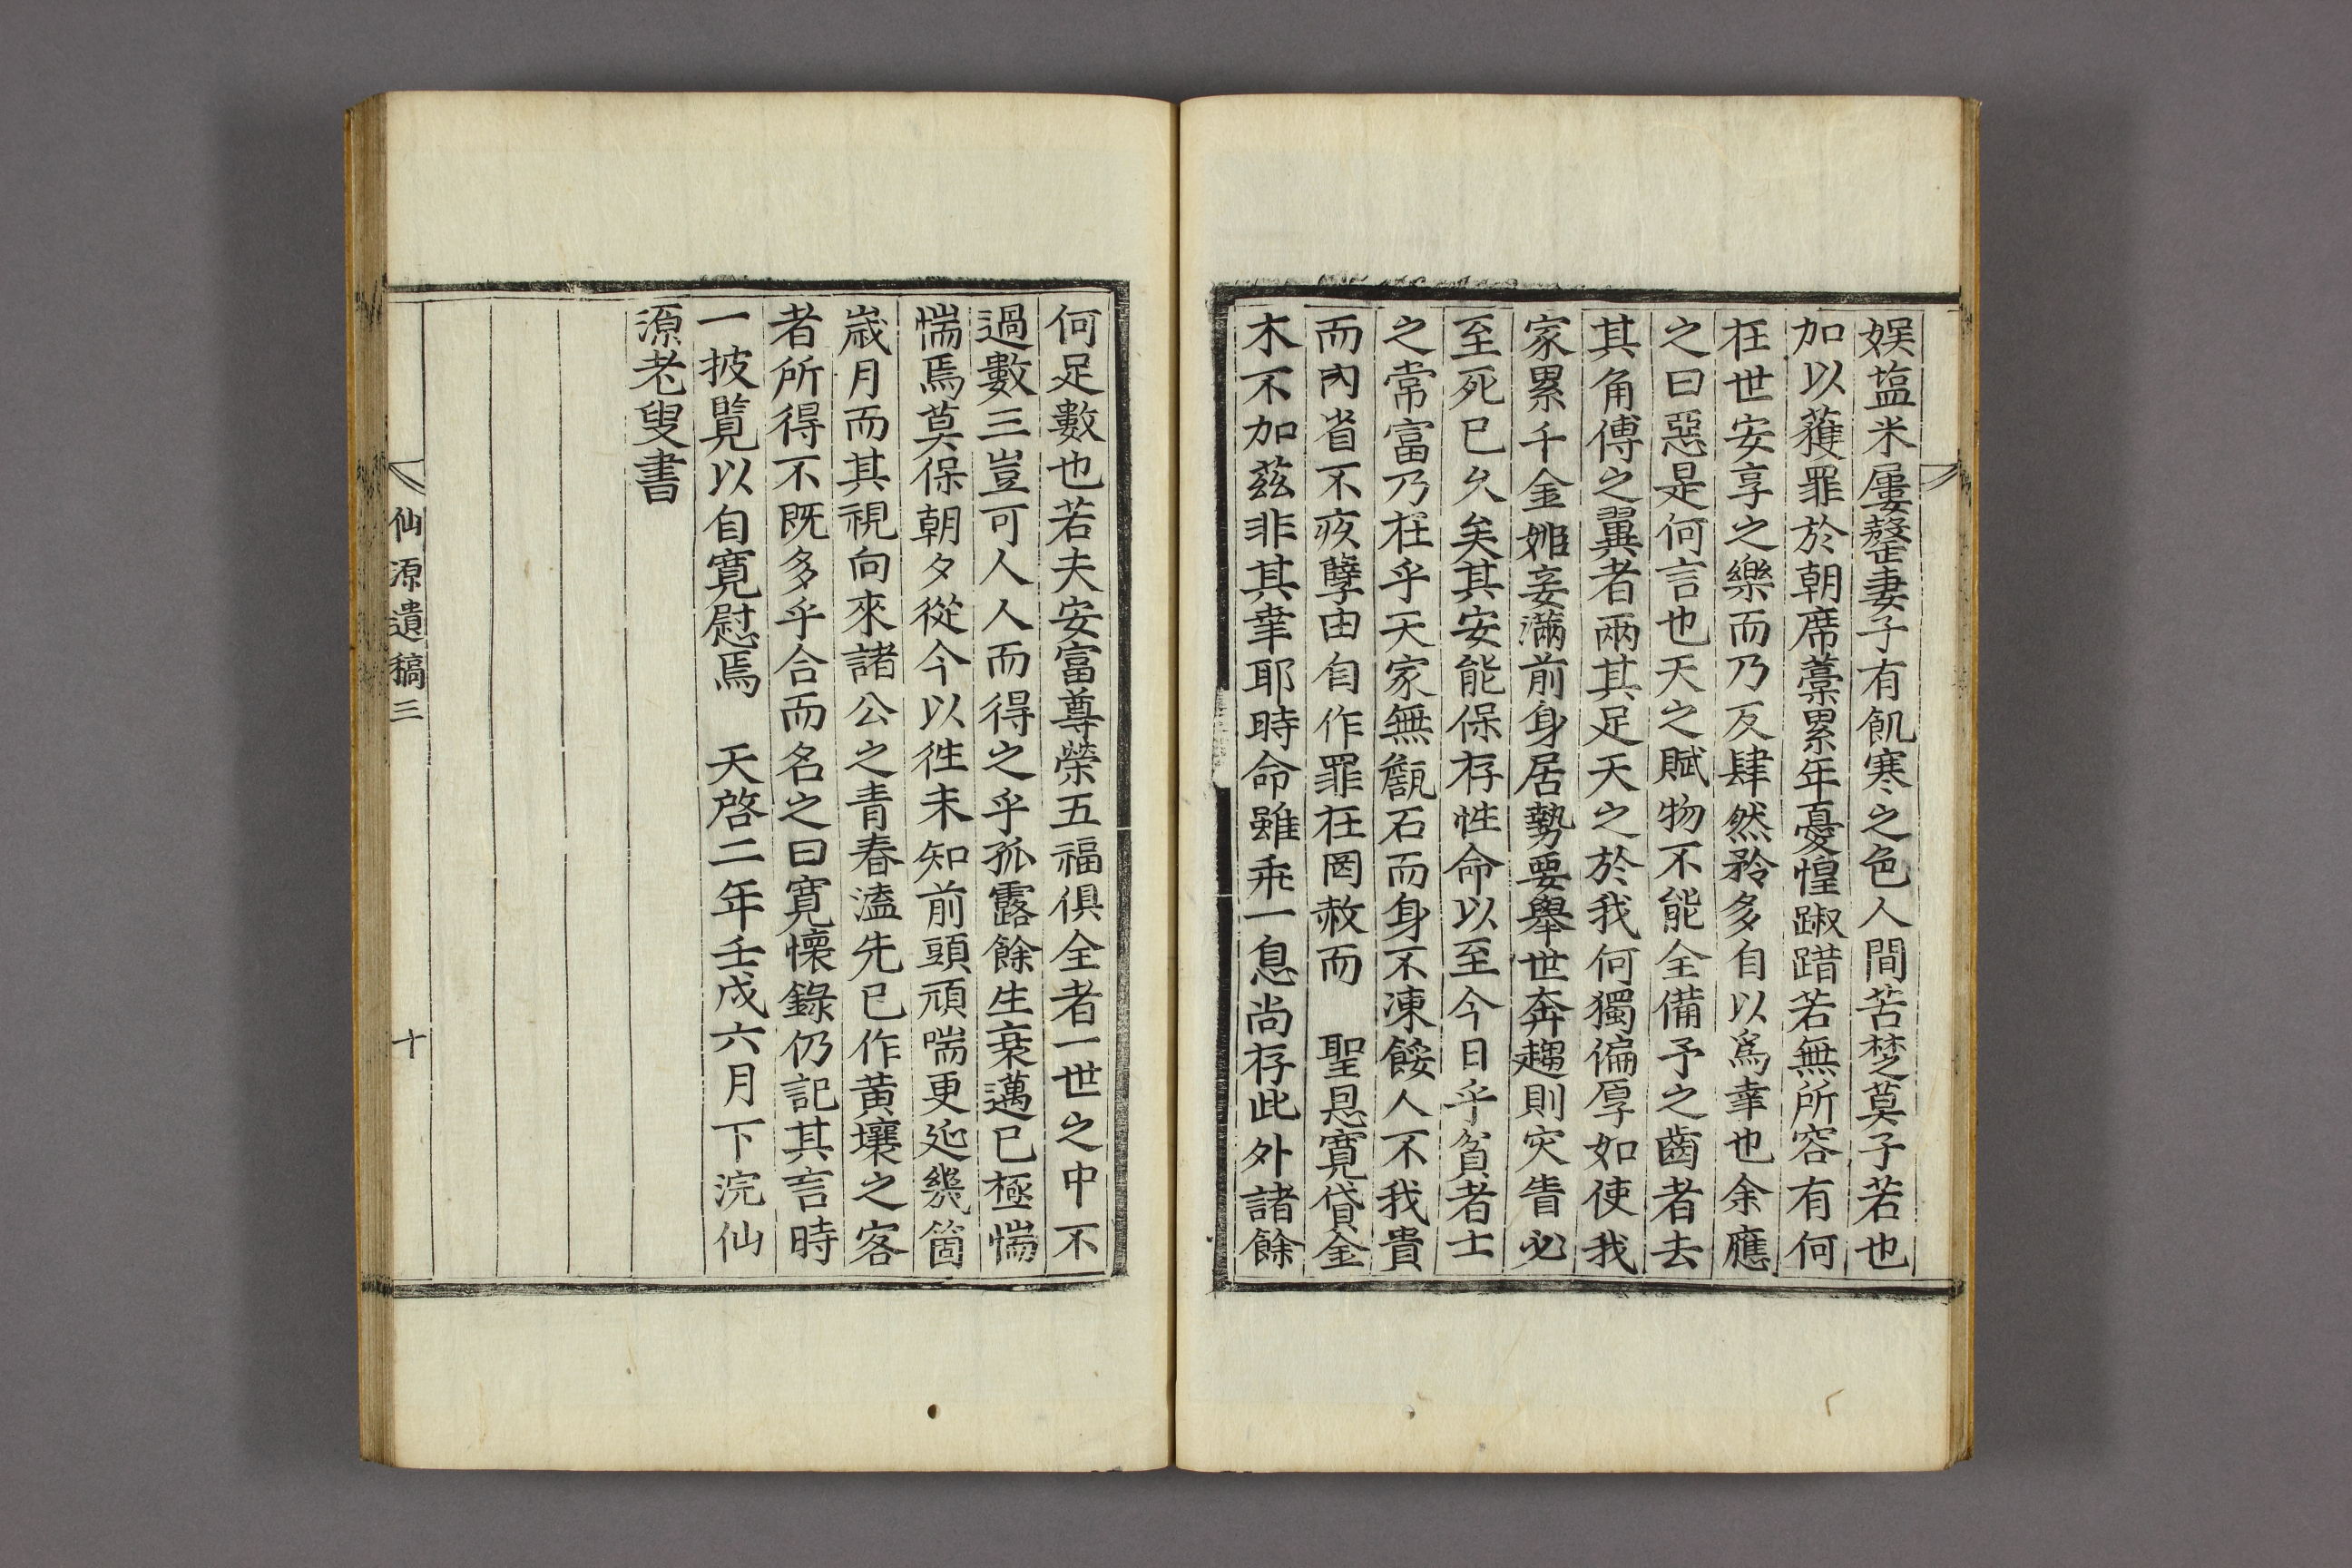 娛塩米屢罄妻子有飢寒之色人間苦楚莫子若也
加以獲罪於朝席藁累年憂惶踧踖若無所容有何
在世安享之樂而乃反肆然矜多自以爲幸也余應
之曰惡是何言也天之賦物不能全備予之齒者去
其角傅之翼者兩其足天之於我何獨偏厚如使我
家累千金姬妾滿前身居勢要舉世奔趨則灾眚必
至死已久矣其安能保存性命以至今日乎貧者士
之常富乃在乎天家無甔石而身不凍餒人不我貴
而內省不疚孽由自作罪在罔赦而　聖恩寬貸金
木不加茲非其幸耶時命雖乖一息尚存此外諸餘
何足數也若夫安富尊榮五福俱全者一世之中不
過數三豈可人人而得之乎孤露餘生衰邁已極惴
惴焉莫保朝夕從今以徃未知前頭頑喘更延幾箇
歲月而其視向來諸公之青春溘先已作黃壤之客
者所得不既多乎合而名之曰寬懷錄仍記其言時
一披覽以自寬慰焉　天啓二年壬戌六月下浣仙
源老叟書
仙源遺稿三
十